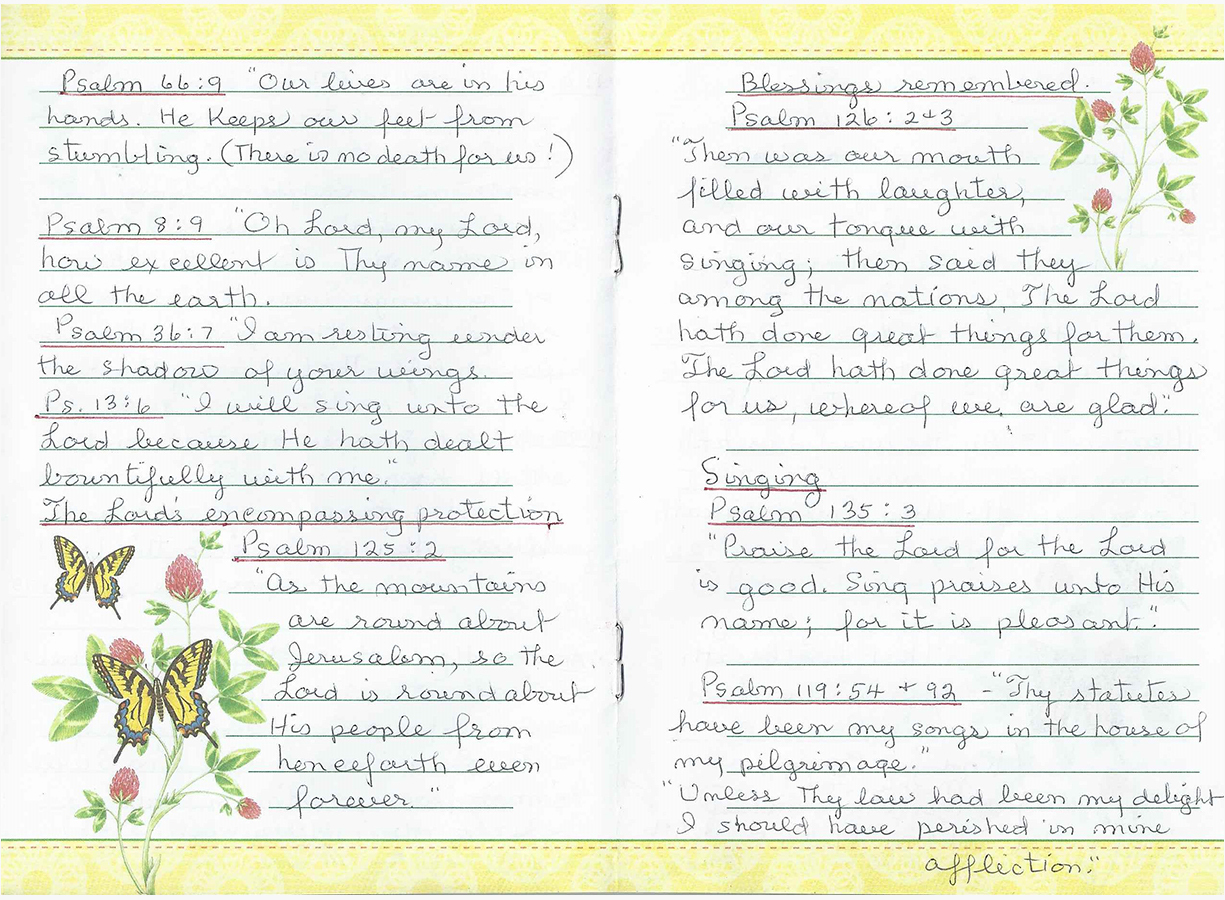 Psalm 66:9 "Our lives are in his
hands. He Keeps our feet from
stumbling. (There is no death for us!)
Psalm 8:9 "Oh Lord, my Lord,
how excellent is Thy name in
all the earth.
Psalm 36:7 "I am resting under
the shadow of your wings.
Ps. 13:6 "I will sing unto the
Lord because He hath dealt
bountifully with me."
The Lord's encompassing protection
Psalm 125:2
"As the mountains
are round about
Jerusalem, so the
Lord is round about
His people from
henceforth even
forever."
Blessings remembered.
Psalm 126:2+3
"Then was our mouth
filled with laughter,
and our tongue with
singing; then said they
among the nations, The Lord
hath done great things for them.
The Lord hath done great things
for us, whereof we are glad."
Singing
Psalm 135:3
"Praise the Lord for the Lord
is good. Sing praises unto His
name; for it is pleasant."
Psalm 119:54 + 92 - "Thy statutes
have been my songs in the house of
my pilgrimage."
"Unless Thy law had been my delight
I should have perished in mine
affliction."